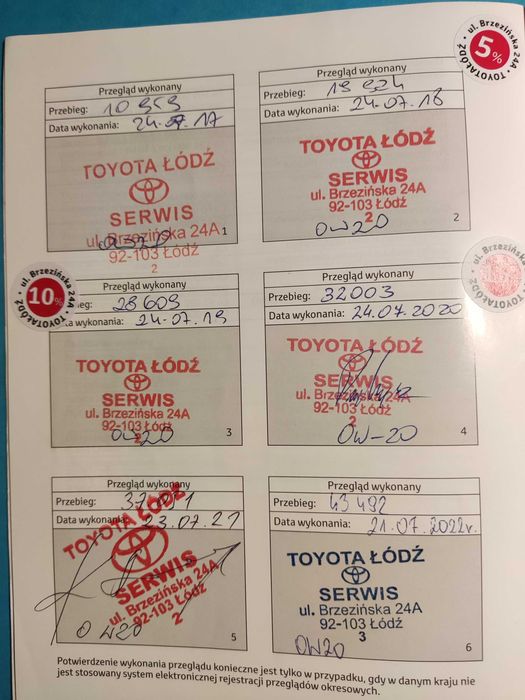 ul. Brzezińska 24A • TOYOTA ŁÓDŹ •
5%
Przegląd wykonany
Przebieg: 10 959
Data wykonania: 24-07.17
TOYOTA ŁÓDŹ
SERWIS
ul. Brzezińska 24A
92-103 Łódź
2
1
Przegląd wykonany
Przebieg: 19 924
Data wykonania: 24-07.18
TOYOTA ŁÓDŹ
SERWIS
ul. Brzezińska 24A
92-103 Łódź
2
0W20
2
ul. Brzezińska 24A • TOYOTA ŁÓDŹ •
10%
Przegląd wykonany
Przebieg: 28 609
Data wykonania: 24-07.19
TOYOTA ŁÓDŹ
SERWIS
ul. Brzezińska 24A
92-103 Łódź
2
0W20
3
Przegląd wykonany
Przebieg: 32003
Data wykonania: 24.07.2020
TOYOTA ŁÓDŹ
SERWIS
ul. Brzezińska 24A
92-103 Łódź
2
0W-20
4
Przegląd wykonany
Przebieg:
Data wykonania: 23.07.21
TOYOTA ŁÓDŹ
SERWIS
ul. Brzezińska 24A
92-103 Łódź
2
0W20
5
Przegląd wykonany
Przebieg: 43 492
Data wykonania: 21.07.2022r.
TOYOTA ŁÓDŹ
SERWIS
ul. Brzezińska 24A
92-103 Łódź
3
0W20
6
Potwierdzenie wykonania przeglądu konieczne jest tylko w przypadku, gdy w danym kraju nie
jest stosowany system elektronicznej rejestracji przeglądów okresowych.